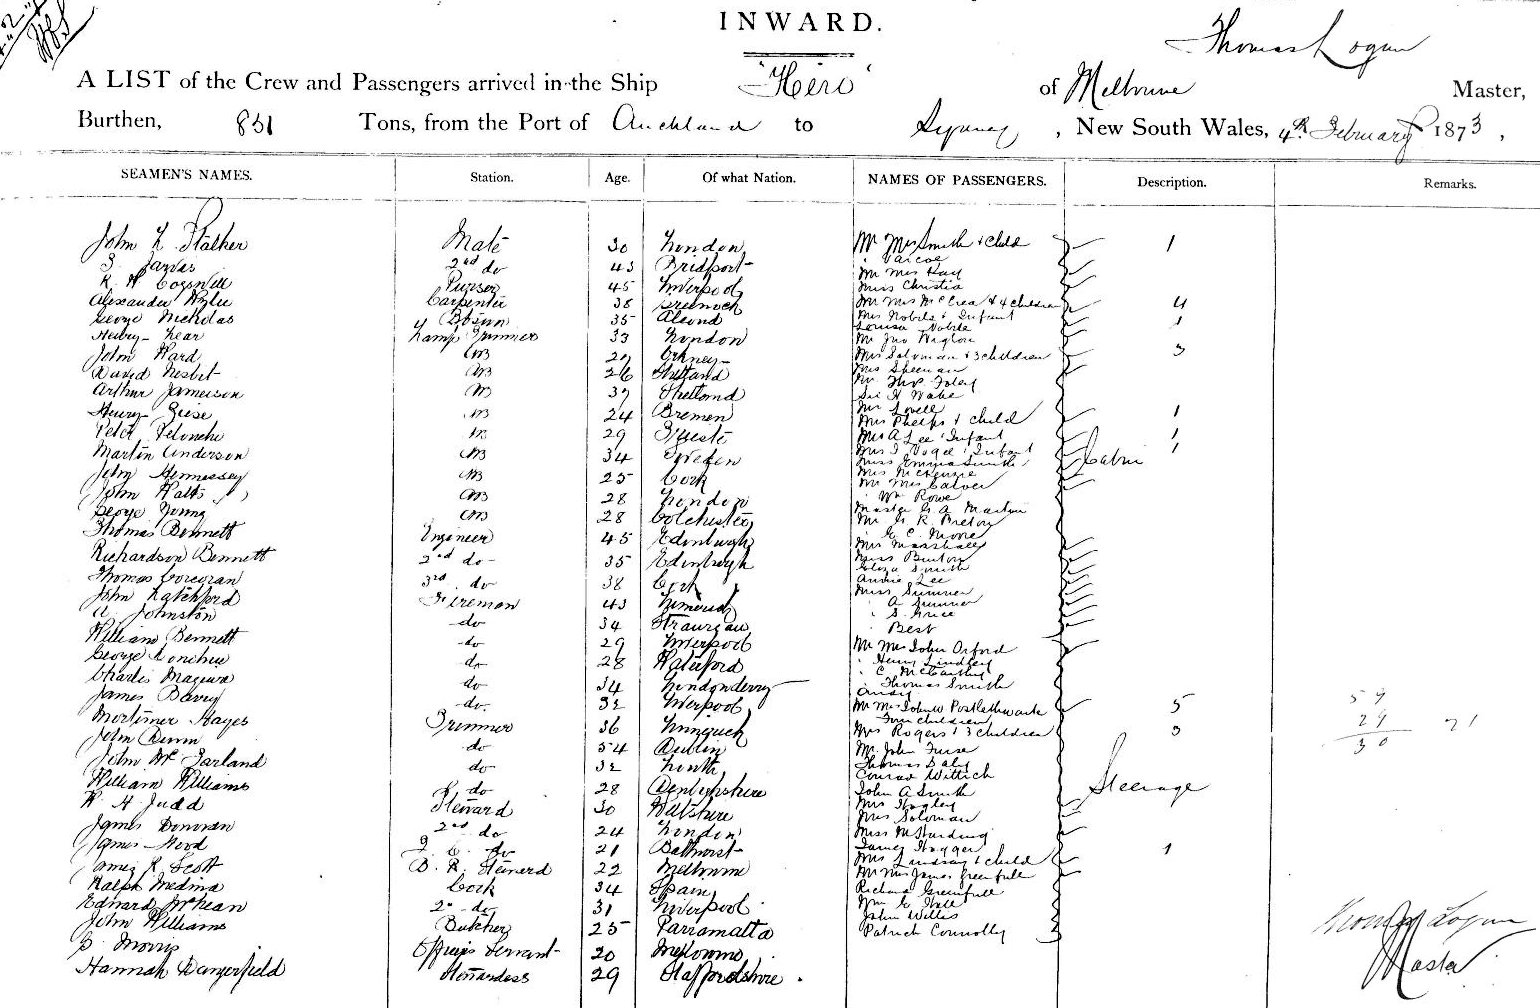 INWARD.
Thomas Logan
A LIST of the Crew and Passengers arrived in the Ship "Hero" of Melbourne Master,
Burthen, 831 Tons, from the Port of Auckland to Sydney, New South Wales, 4th February 1873,
SEAMEN'S NAMES. Station. Age. Of what Nation. NAMES OF PASSENGERS. Description. Remarks.
John L Stalker Mate 30 London Mr Mrs Smith & Child 1
S. Jarvis 2nd do 43 Bridport " Varcoe
R W Cogswill Purser 45 Liverpool Mr Mrs Hay
Miss Christia
Alexander Wylie Carpenter 38 Greenock Mr Mrs McCrea & 4 children 4
George Nicholas Bosun 35 Mrs Nobile & Infant 1
Louisa Nobile
Henry Lear Lamp Trimmer 33 London Mr Jno Wigton
John Ward AB 29 Orkney Mrs Soloman & 3 children 3
David Nesbit AB 26 Shetland Mrs Sheenan
Mr Thos Foley
Arthur Jamieson AB 37 Shetland
Henry Giese AB 24 Bremen Mr Lovell
Mrs Phelps & child 1
Peter AB 29 Trieste Mrs A Lee Infant 1
Martin Anderson AB 34 Sweden Mrs I Vogel Infant 1
Miss Emma Smith Cabin
John Hennessey AB 25 Cork Mrs McKenzie
Mr Mrs Calver
John Watts AB 28 London " Wm Rowe
George Young AB 28 Colchester Master G A Martin
Thomas Bennett Engineer 45 Edinburgh Mr G R Breton
G C Moore
Richardson Bennett 2nd do 35 Edinburgh Mrs Marshall
Miss Burton
Eliza Smith
Thomas Corcoran 3rd do 38 Cork Annie Lee
John Latchford Fireman 43 Limerick Miss Sumner
A Sumner
A Johnston do 34 Stranraer " S. Price
William Bennett do 29 Liverpool " Best
George Donohue do 28 Waterford Mr Mrs John Orford
" Henry Lindsey
Charles Maguire do 34 Londonderry " C McCarthy
" Thomas Smith
James Barry do 32 Liverpool Mr Mrs John W Postlethwaite 5 59
Four children
Mortimer Hayes Trimmer 36 Mrs Rogers & 3 children 3 29 71
John Dunn do 54 Dublin Mr. John Furse 30
John McFarland do 32 Louth Thomas Daly
Conrad Wittich
William Williams do 28 Denbighshire John A Smith Steerage
W H Judd Steward 30 Wiltshire Mrs Hagley
Mrs Soloman
James Donovan 2nd do 24 London Miss M Harding
James Wood do 21 Bathurst James Hagger 1
James R Scott B. R. Steward 22 Melbourne Mrs Lindsay & child
Mr Mrs James Greenfull
Ralph Medina Cook 34 Spain Richard Greenfull
Edward McKean 2nd do 31 Liverpool Wm G Hall
John Williams Butcher 25 Parramatta John Willis
Patrick Connolly Thomas Logan
S. Morris Officers Servant 20 Melbourne Master
Hannah Dangerfield Stewardess 29 Staffordshire.